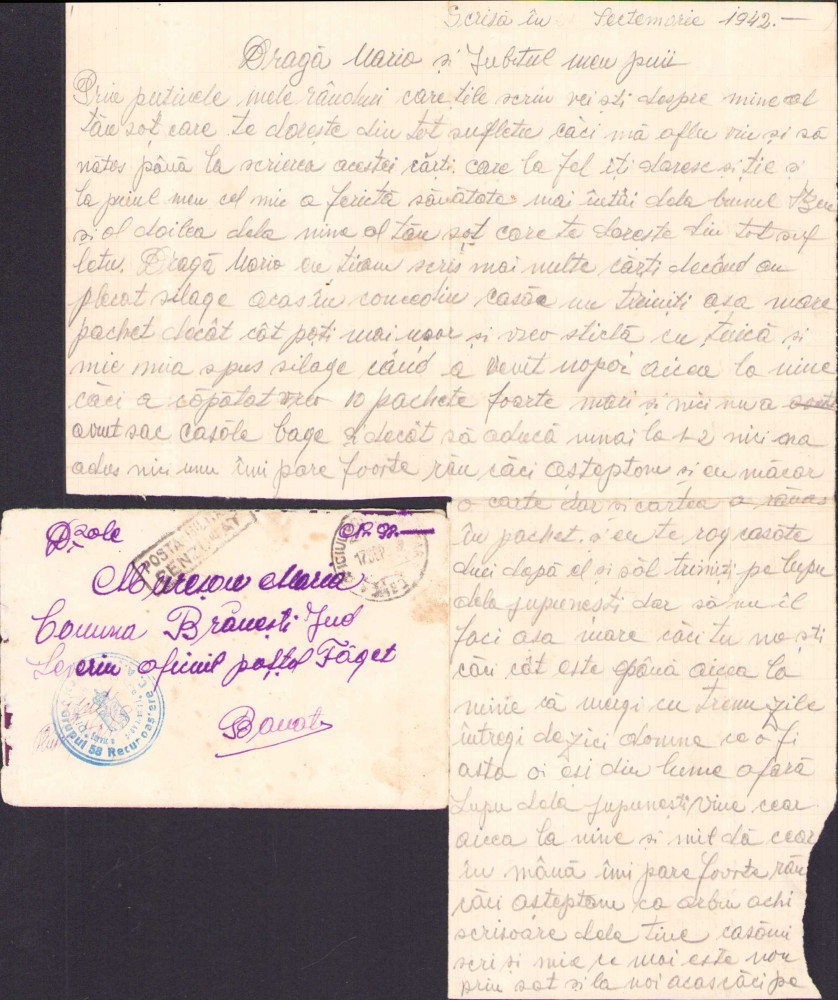 Scrisă în Sectemarie 1942.—
Dragă Mario și Iubitul meu puii
Prin puținele mele rânduri care țile scriu vei sti despre mine al
tău soț care te dorește din tot sufletu căci mă aflu viu și să
nătos până la scrierea acestei cărți care la fel iți doresc și ție și
la puiul meu cel mic a fericită sănătate mai întâi dela bunul
și al doilea dela mine al tău soț care te dorește din tot suf
letu. Dragă Mario eu tiam scris mai multe cărți decând au
plecat silage acas în concediu casăe nu trimiți așa mare
pachet decât cât poți mai ușor și vreo sticlă cu țuică și
mie mia spus silage când a venit napoi aicea la mine
căci a căpătat vreo 10 pachete foarte mari și nici nu a
avut sac casăle bage și decât să aducă numai la 1-2 nici na
adus nici unu îmi pare foarte rău căci așteptam și eu măcar
o carte dar și cartea a rămas
în pachet. și eu te rog casăte
duci după el și săl trimiți pe lupu
dela jupunești dar să nu îl
faci asa mare căci tu nu ști
căci cât este până aicea la
mine că mergi cu trenu zile
întregi dezici domne ce o fi
asta oi eși din lume afară
Lupu dela jupunești vine cear
aicea la mine și mil dă cear
în mână îmi pare foarte rău
căci așteptam ca orbu achi
scrisoare dela tine casămi
scri și mie ce mai este nou
prin sat și la noi acas căci pe
D. sale
POSTA MILITARĂ
CENZURAT
OFICIUL
Maria
Comuna Brănești Jud
Severin oficiul poștal Făget
Banat
Grupul 58 Recunoastere C.A.